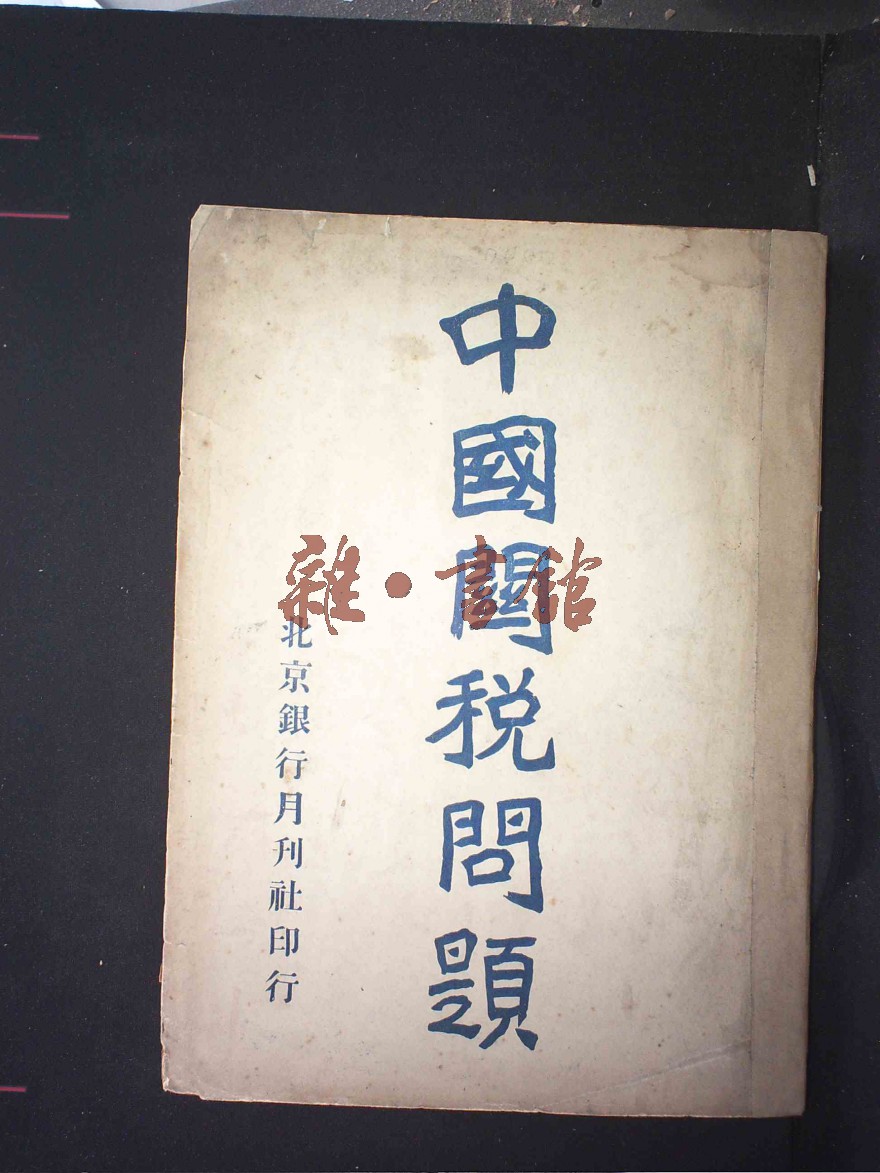 中國關税問題
北京銀行月刊社印行
雜·書館